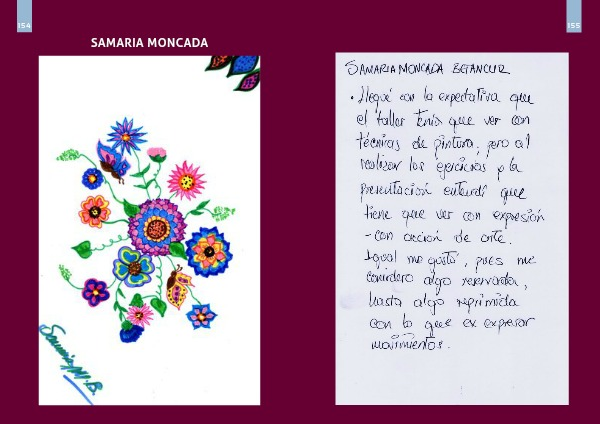 154
155
SAMARIA MONCADA
Samaria M.B.
SAMARIA MONCADA BETANCUR
• Llegué con la expectativa que
el taller tenía que ver con
técnicas de pintura, pero al
realizar los ejercicios y la
presentación entendí que
tiene que ver con expresión
- con acción de arte.
Igual me gustó, pues me
considero algo reservada,
hasta algo reprimida
con lo que es expresar
movimientos.